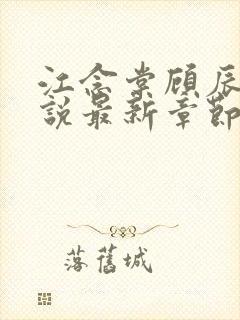 江念棠顾辰
說最新章節
落舊城